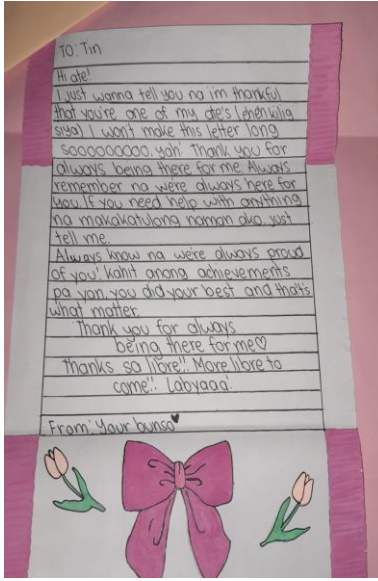 TO: Tin
Hi ate!
I just wanna tell you na i'm thankful
that you're one of my ate's (eheh kilig
siya) I won't make this letter long
sooooooooo, yah! Thank you for
always being there for me. Always
remember na we're always here for
you. If you need help with anything
na makakatulong naman ako, just
tell me.
Always know na we're always proud
of you! kahit anong achievements
pa yan, you did your best and that's
what matter.
Thank you for always
being there for me♡
Thanks sa libre!! More libre to
come!! Labyaaa!
From: Your bunso♥